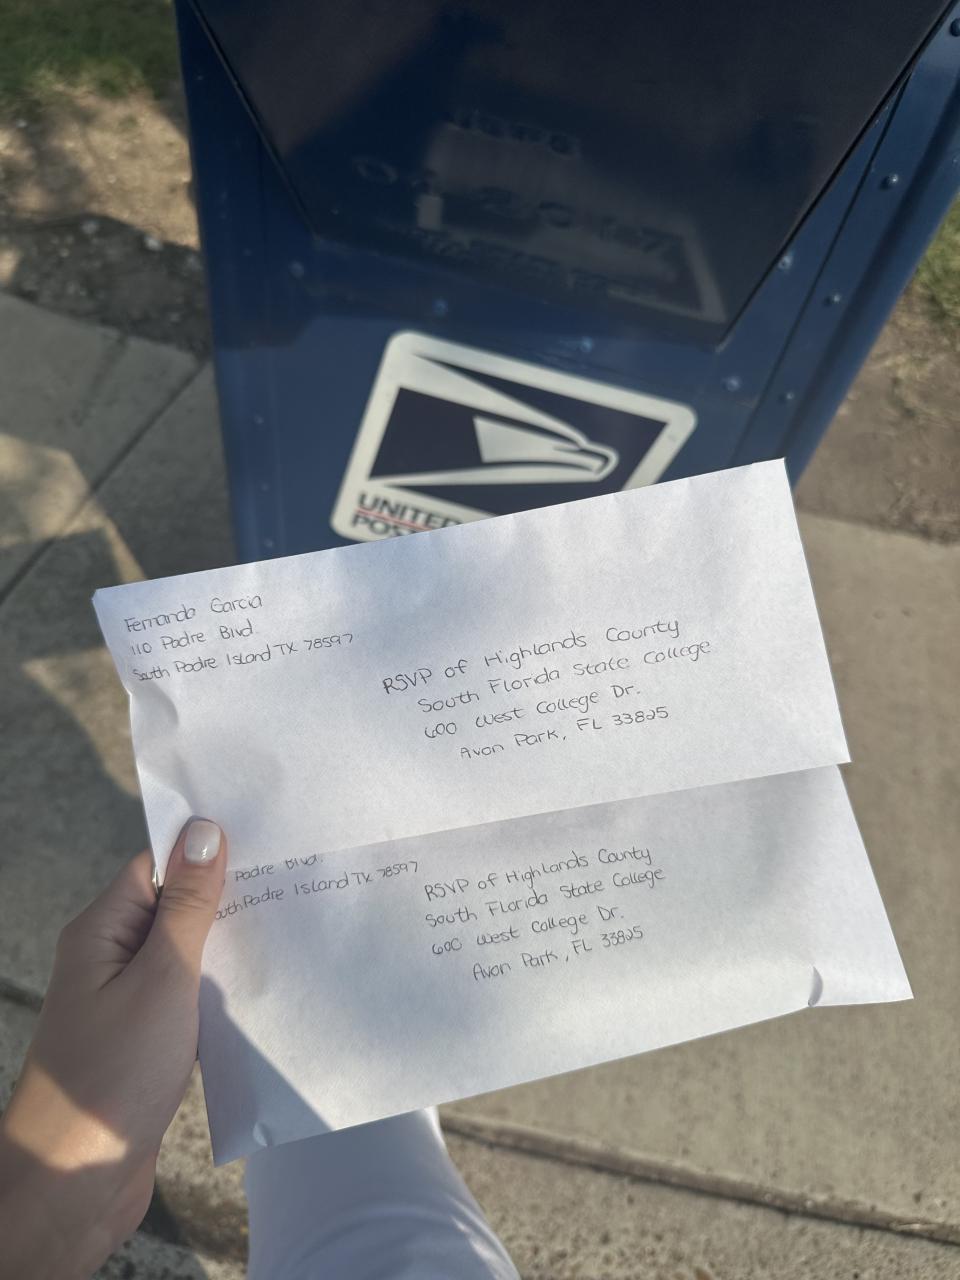 UNITED
Fernanda Garcia
110 Padre Blvd.
South Padre Island TX 78597
RSVP of Highlands County
South Florida State College
600 West College Dr.
Avon Park, FL 33825
Padre Blvd.
South Padre Island TX 78597
RSVP of Highlands County
South Florida State College
600 West College Dr.
Avon Park, FL 33825